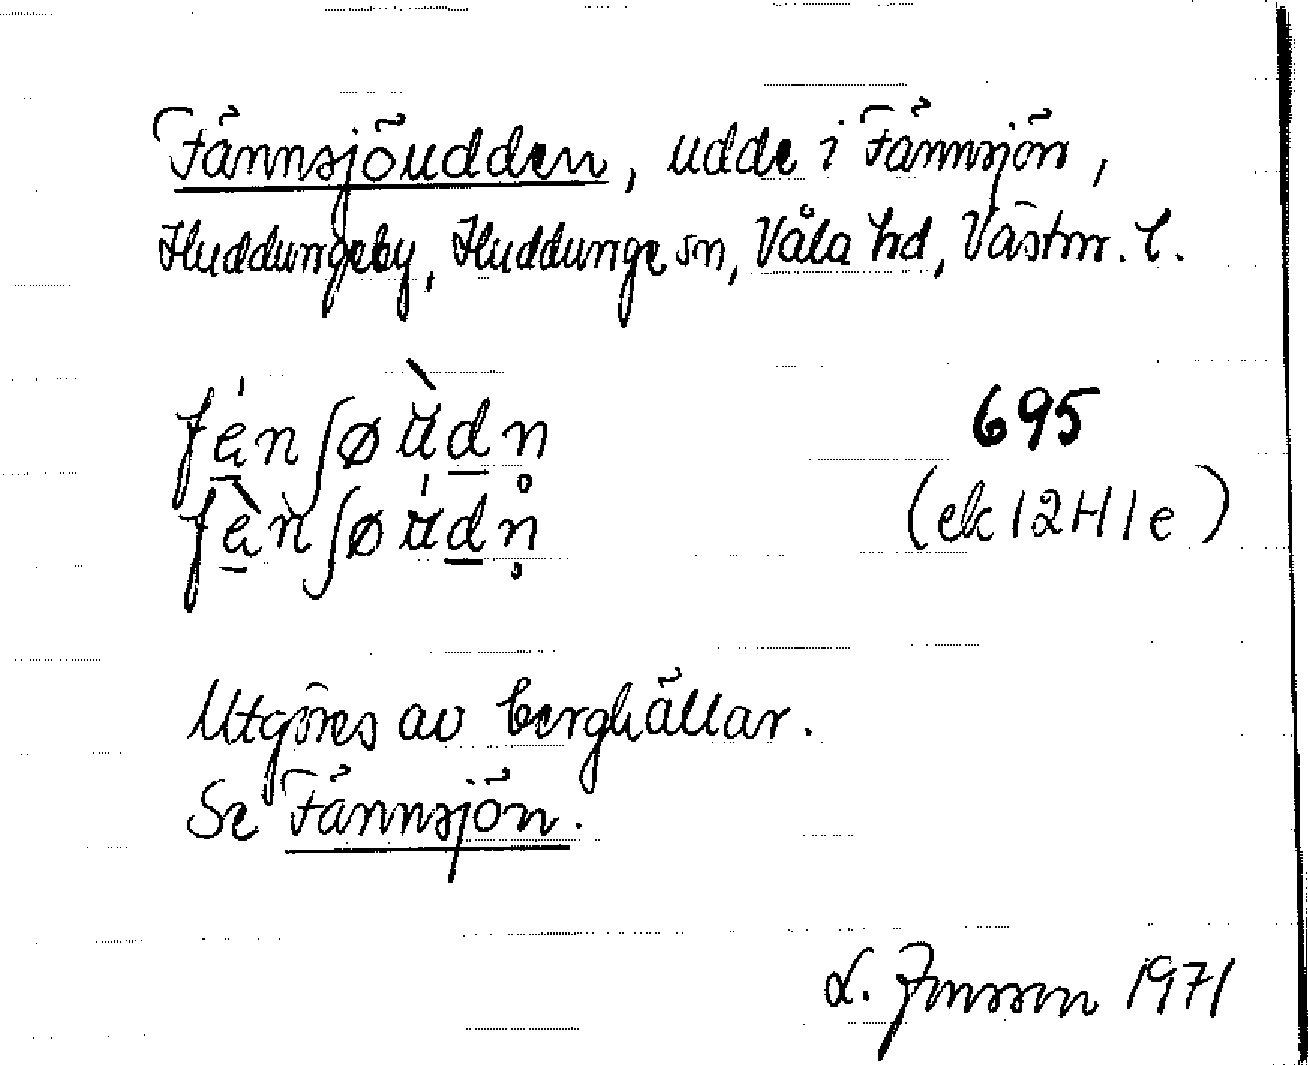 Fännsjöudden, udde i Fännsjön,
Huddungeby, Huddunge sn, Våla hd, Västm. l.
695
(ek 12H1e)
Utgöres av berghällar.
Se Fännsjön.
L. Jonsson 1971